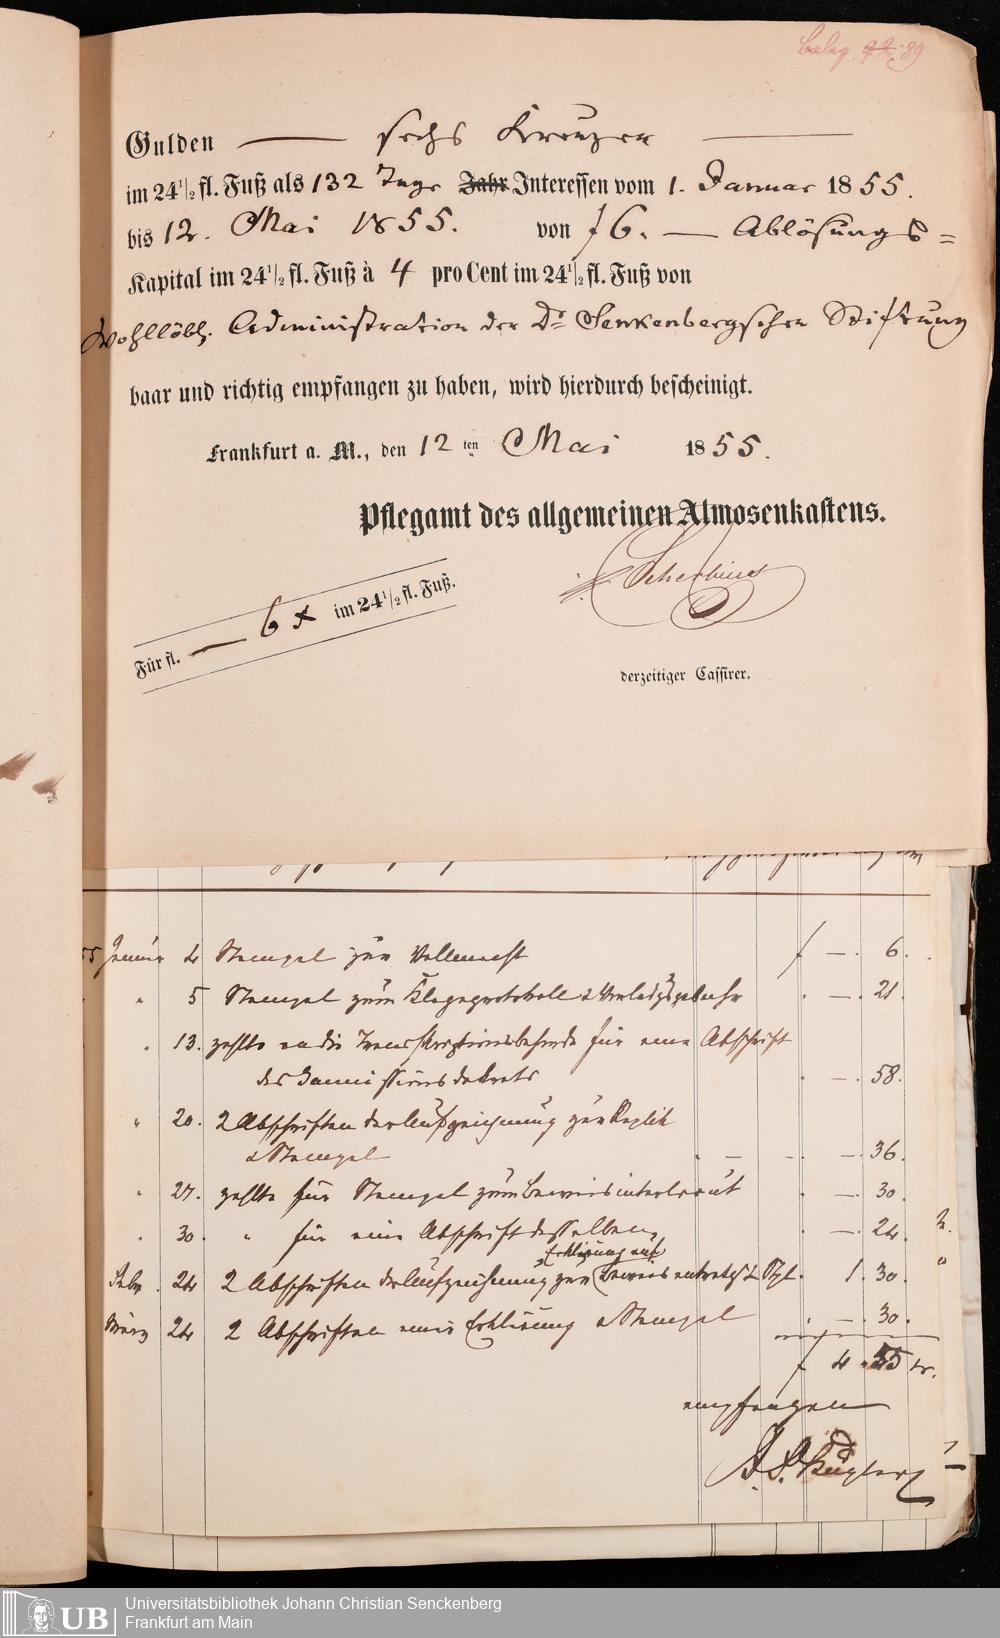 Beleg. 92. 89
Gulden — sechs Kreuzer —
im 24 1/2 fl. Fuß als 132 Tage Jahr Interessen vom 1. Januar 1855.
bis 12. Mai 1855. von f 6. — Ablösungs=
Kapital im 24 1/2 fl. Fuß à 4 pro Cent im 24 1/2 fl. Fuß von
Wohllöbl. Administration der Dr Senkenbergschen Stiftung
baar und richtig empfangen zu haben, wird hierdurch bescheinigt.
Frankfurt a. M., den 12 ten Mai 1855.
Pflegamt des allgemeinen Almosenkastens.
Scherbius
Für fl. — 6 x im 24 1/2 fl. Fuß.
derzeitiger Cassirer.
55 Januar 4 Stempel zur Vollmacht f —. 6.
" 5 Stempel zum Klageprotokoll & . —. 21.
" 13. zahlte an die Transkriptionsbehörde für eine Abschrift
des Dekrets . —. 58.
" 20. 2 Abschriften der Aufzeichnung zur Replik
& Stempel —. 36.
" 27. zahlte für Stempel zum Beweisinterlocut . —. 30.
" 30. " für eine Abschrift desselben, . —. 24.
Erklärung auf
Febr. 24 2 Abschriften der Aufzeichnung zur Beweisantretg & Stpl. 1. 30.
März 24 2 Abschriften einer Erklärung & Stempel . —. 30.
f 4. 55 kr.
empfangen
Kugler
UB Universitätsbibliothek Johann Christian Senckenberg
Frankfurt am Main